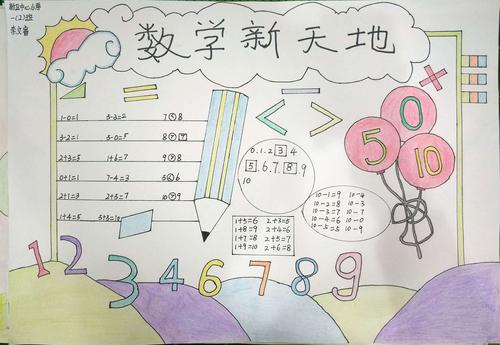 新区中心小学
一(2)班
李文睿
数学新天地
1-0=1 5-3=2 7<8
3-2=1 5-0=5 8>7
2+3=5 1+6=7 9>8
0+1=1 7-4=3 5<6
2+1=3 2+5=7 10>9
1+4=5 5+5=10
= - < > +
0.1.2 3 4
5.6.7.8.9
10
1+5=6 2+3=5
1+8=9 2+4=6
1+7=8 2+5=7
1+9=10 2+6=8
10-1=9 10-4
10-2=8 10-3
10-3=7 10-7
10-4=6 10-0
10-5=5 10-9
5 0 10
1 2 3 4 6 7 8 9